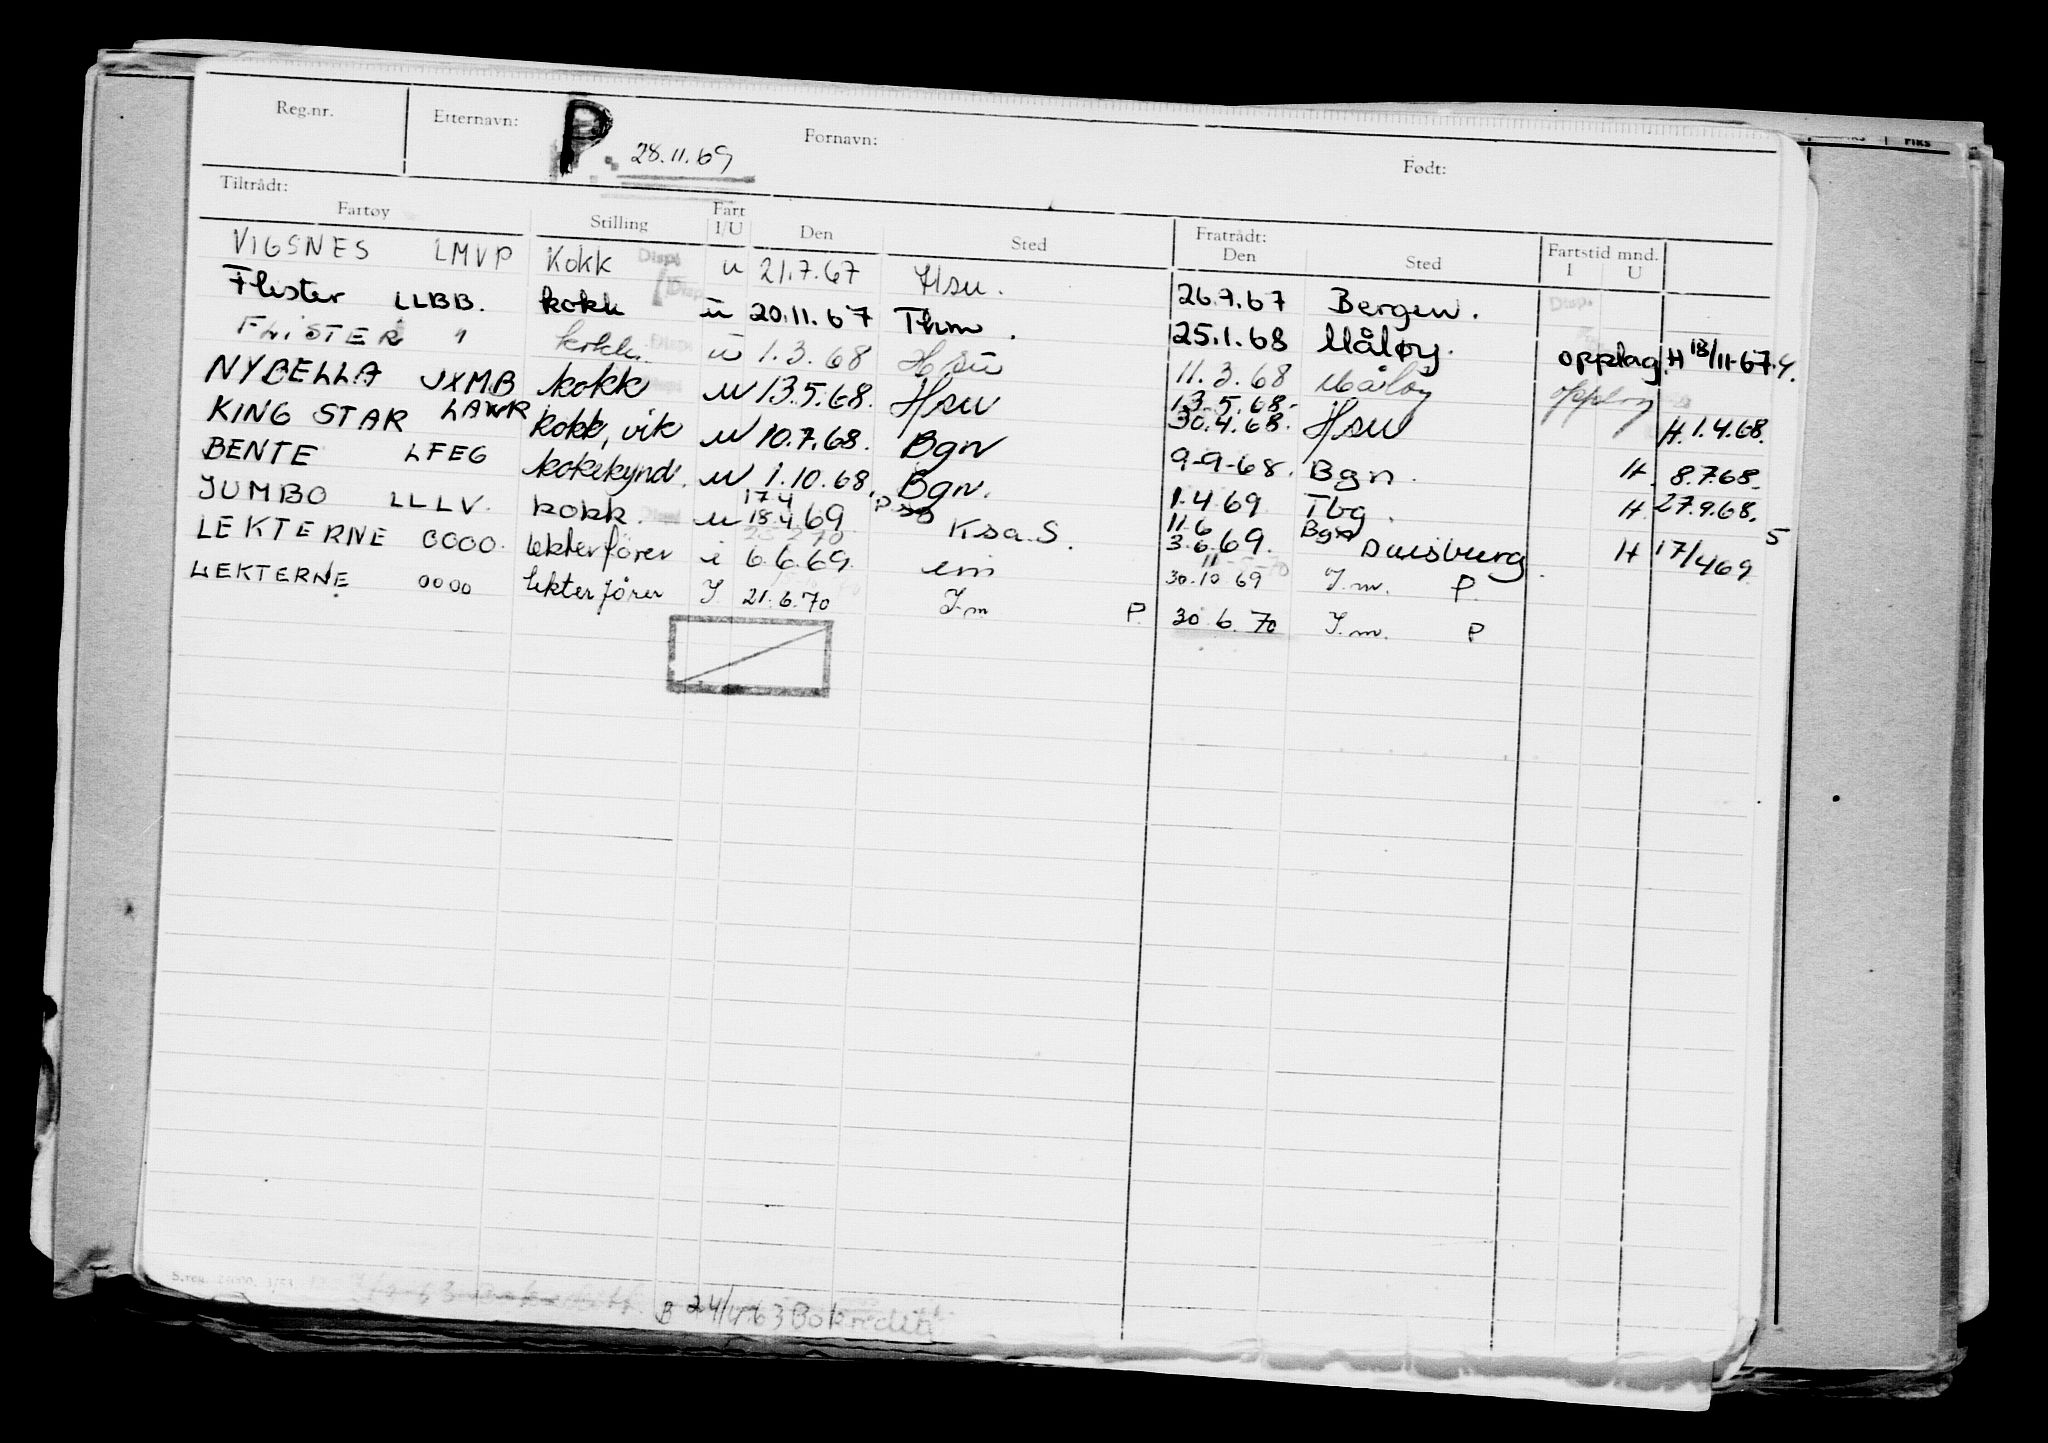 Reg.nr. Etternavn: P. 28.11.69 Fornavn: Født:
Tiltrådt: Fratrådt:
Fartøy Stilling Fart I/U Den Sted Den Sted Fartstid mnd. I U
VIGSNES LMVP Kokk u 21.7.67 Hsu. 26.9.67 Bergen.
Flister LLBB. kokk u 20.11.67 Thm. 25.1.68 Måløy. opplag. H 18/11-67.4.
FLISTER " kokk u 1.3.68 Hsu 11.3.68 Måløy opplag
NYBELLA JXMB kokk u 13.5.68. Hsu 13.5.68. 30.4.68. Hsu H.1.4.68.
KING STAR LAWR kokk, vik u 10.7.68. Bgn 9-9-68. Bgn. H. 8.7.68.
BENTE LFEG kokkkynd. u 1.10.68. Bgn. 1.4.69 Tbg. H. 27.9.68.
JUMBO LLLV. kokk. u 17.4 18.4.69 P Ksa.S. 11.6 3.6.69. Bgn Duisburg. H 17/469 5
LEKTERNE 0000. lekterfører i 6.6.69. im 30.10 69 I.m. P.
LEKTERNE 0000 lekterfører I 21.6.70 I.m P. 30.6.70 I.m. P
S.reg.
B 24/